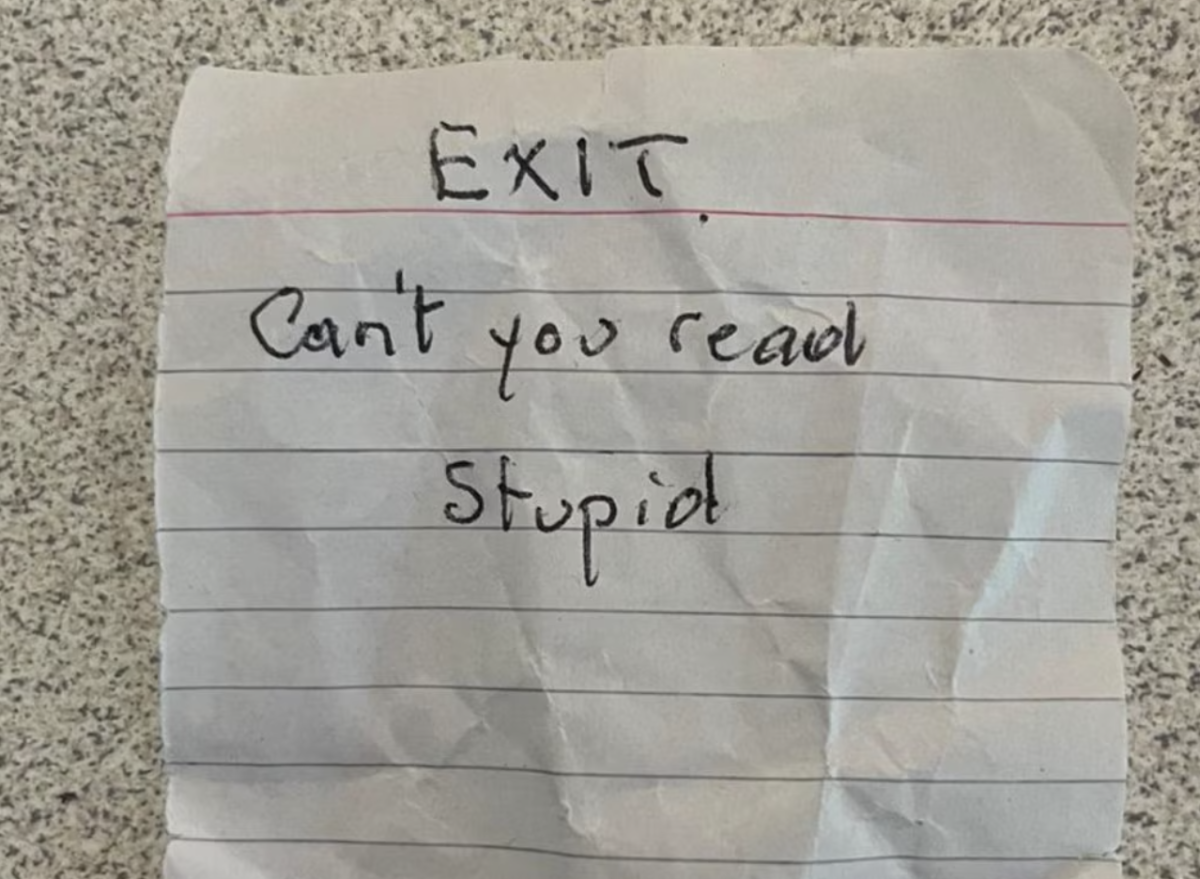 EXIT.
Can't you read
Stupid